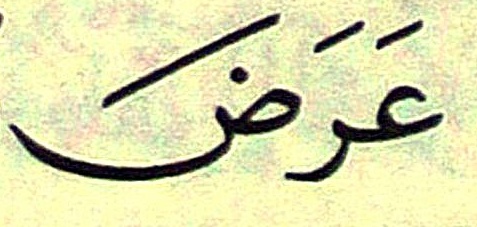 عَرَضَ